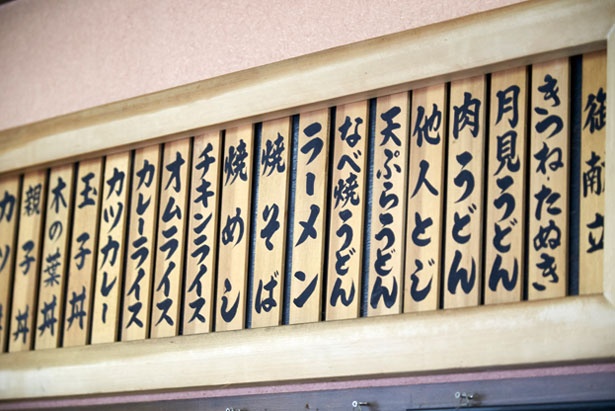 御献立
きつね・たぬき
月見うどん
肉うどん
他人とじ
天ぷらうどん
なべ焼うどん
ラーメン
焼そば
焼めし
チキンライス
オムライス
カレーライス
カツカレー
玉子丼
木の葉丼
親子丼
カツ丼